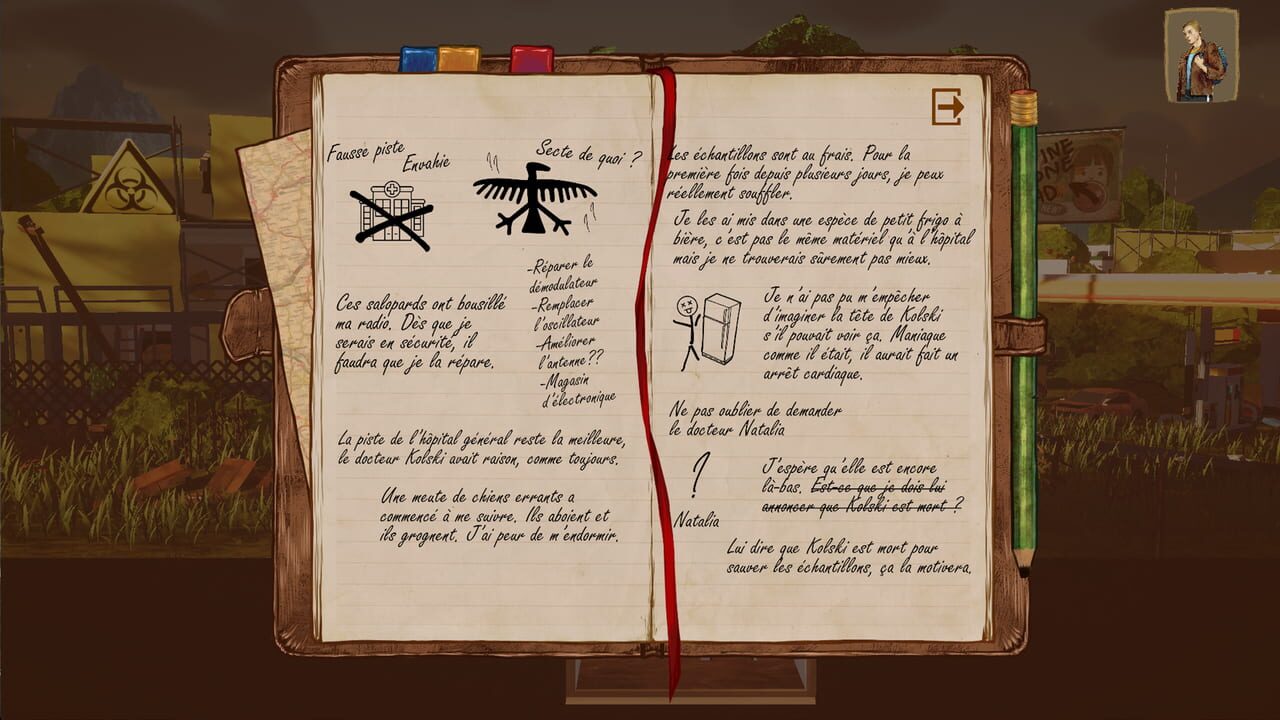 Fausse piste
Envahie
Secte de quoi ?
-Réparer le
démodulateur
-Remplacer
l'oscillateur
-Améliorer
l'antenne??
-Magasin
d'électronique
Ces salopards ont bousillé
ma radio. Dès que je
serais en sécurité, il
faudra que je la répare.
La piste de l'hôpital général reste la meilleure,
le docteur Kolski avait raison, comme toujours.
Une meute de chiens errants a
commencé à me suivre. Ils aboient et
ils grognent. J'ai peur de m'endormir.
Les échantillons sont au frais. Pour la
première fois depuis plusieurs jours, je peux
réellement souffler.
Je les ai mis dans une espèce de petit frigo à
bière, c'est pas le même matériel qu'à l'hôpital
mais je ne trouverais sûrement pas mieux.
Je n'ai pas pu m'empêcher
d'imaginer la tête de Kolski
s'il pouvait voir ça. Maniaque
comme il était, il aurait fait un
arrêt cardiaque.
Ne pas oublier de demander
le docteur Natalia
?
Natalia
J'espère qu'elle est encore
là-bas. Est-ce que je dois lui
annoncer que Kolski est mort ?
Lui dire que Kolski est mort pour
sauver les échantillons, ça la motivera.